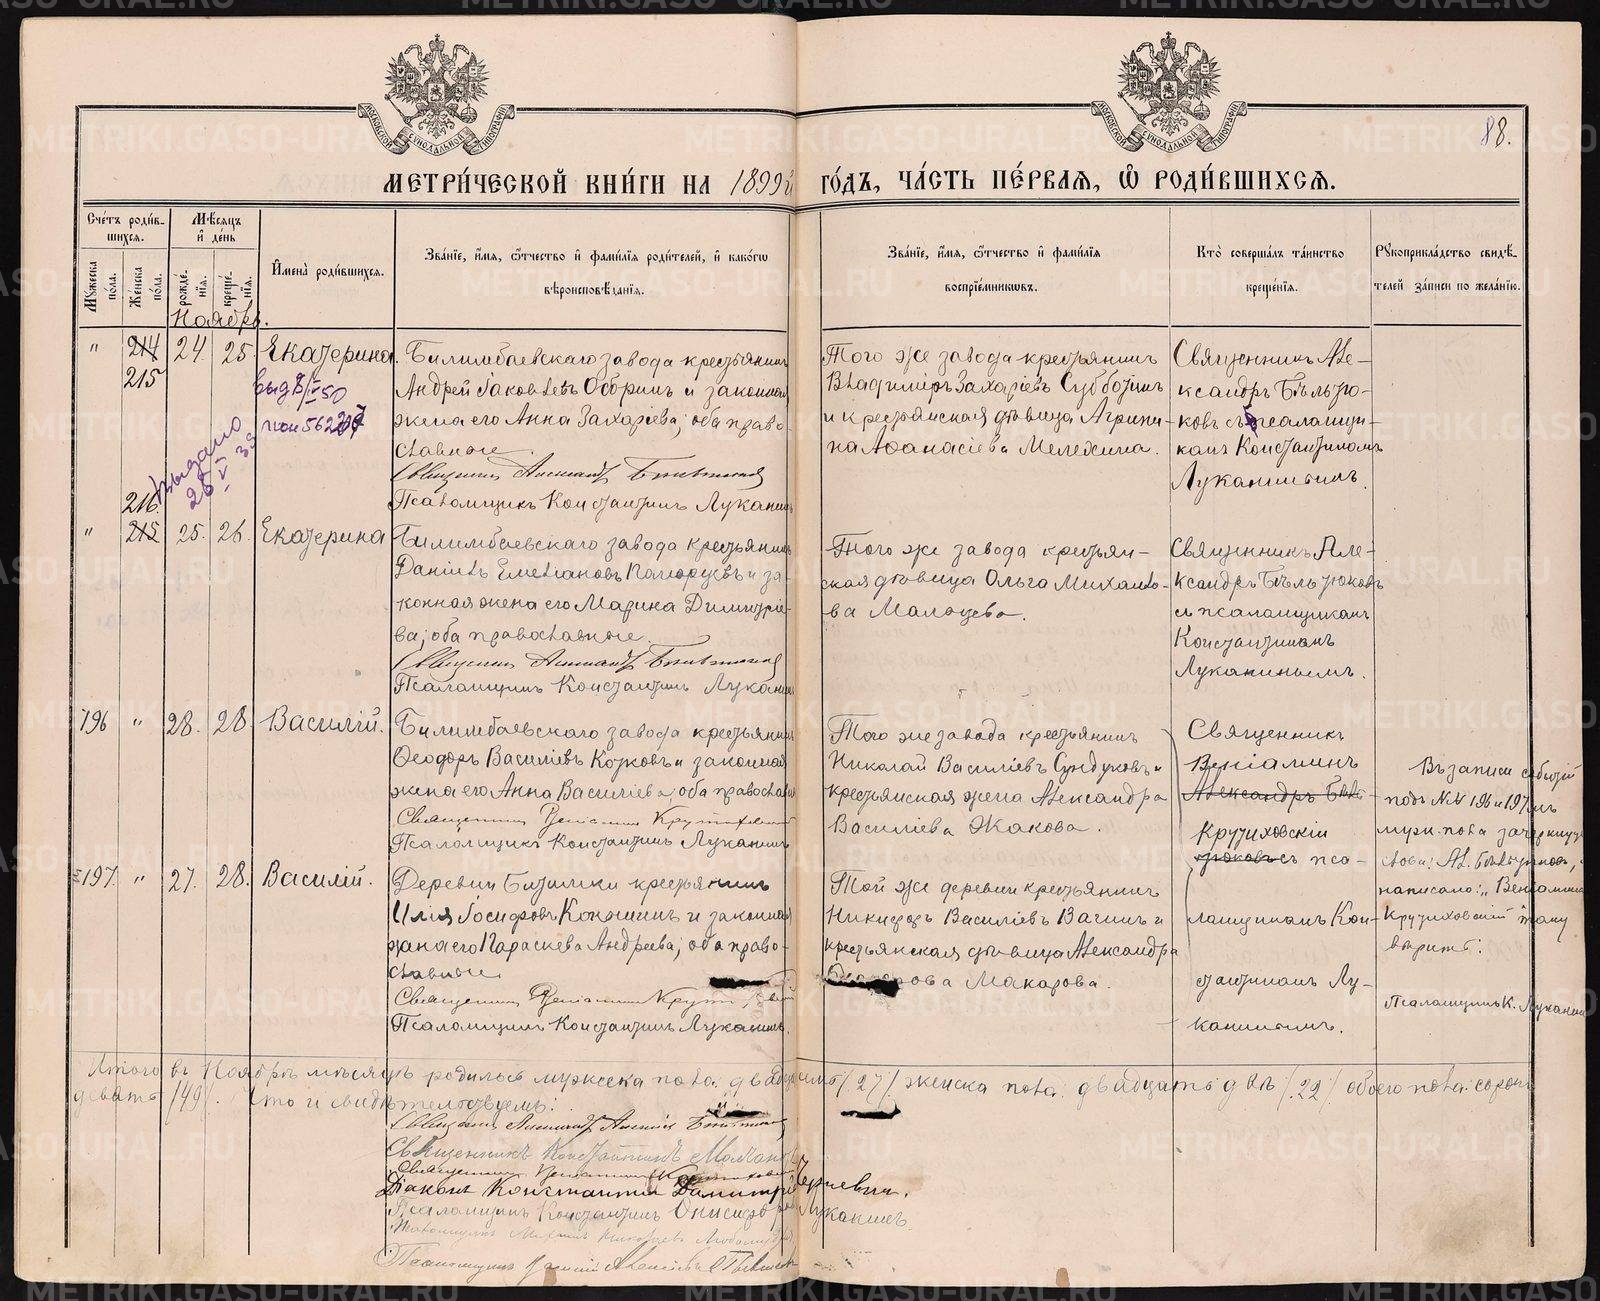 88.
МЕТРИ́ЧЕСКОЙ КНИ́ГИ НА 1899й ГО́ДЪ, ЧА́СТЬ ПЕ́РВАЯ, Ѽ РОДИ́ВШИХСЯ.
Сче́тъ роди́вшихся.
Му́жеска по́ла.
Же́нска по́ла.
Мѣ́сяцъ и҆ де́нь
рожде́нїя.
креще́нїя.
И҆мена̀ роди́вшихся.
Зва́нїе, и҆́мя, ѻ҆́тчество и҆ фами́лїя роди́телей, и҆ како́гѡ
вѣроисповѣ́данїя.
Зва́нїе, и҆́мя, ѻ҆́тчество и҆ фами́лїя
воспрїе́мниковъ.
Кто̀ соверша́лъ та́инство
креще́нїя.
Рꙋкоприкла́дство свидѣ́-
телей за́писи по жела́нїю.
Ноябрь.
" 214 24 25. Екатерина.
215
Билимбаевскаго завода крестьянинъ
Андрей Іаковлевъ Оборинъ и законная
жена его Анна Захаріева; оба право-
славные.
Псаломщикъ Константинъ Луканинъ
Того же завода крестьянинъ
Владиміръ Захаріевъ Субботинъ
и крестьянская дѣвица Агрипи-
на Аѳанасіева Мелехина.
Священникъ Але-
ксандръ Бѣльтю-
ковъ съ псаломщи-
комъ Константиномъ
Луканинымъ.
Выдано
216.
" 215 25. 26. Екатерина
Билимбаевскаго завода крестьянинъ
Даніилъ Емеліановъ и за-
конная жена его Марина Димитріе-
ва; оба православные.
Псаломщикъ Константинъ Луканинъ
Того же завода крестьян-
ская дѣвица Ольга Михаило-
ва Мальцева.
Священникъ Але-
ксандръ Бѣльтюковъ
съ псаломщикомъ
Константиномъ
Луканинымъ.
196 " 28. 28. Василій.
Билимбаевскаго завода крестьянинъ
Ѳеодоръ Василіевъ Котковъ и законная
жена его Анна Василіева, оба православн
Священникъ Веніаминъ Крутиховскій
Псаломщикъ Константинъ Луканинъ
Того же завода крестьянинъ
Николай Василіевъ Сундуковъ и
крестьянская жена Александра
Василіева Жакова.
Священникъ
Веніаминъ
Александръ Бѣль-
Крутиховскій
тюковъ съ пса-
ломщикомъ Кон-
стантиномъ Лу-
канинымъ.
Въ записи событій
подъ №№ 196 и 197мъ
муж. пола зачеркнуты
слова: Ал. Бѣльтюковъ,
написано: "Веніаминъ
Крутиховскій" тому
вѣрить:
Псаломщикъ К. Луканинъ
197. " 27. 28. Василій.
Деревни Битимки крестьянинъ
Илія Іосифовъ Коношинъ и законная
жена его Параскева Андреева; оба право-
славные.
Священникъ Веніаминъ Крутиховскій
Псаломщикъ Константинъ Луканинъ.
Той же деревни крестьянинъ
Никифоръ Василіевъ Вагинъ и
крестьянская дѣвица Александра
Макарова.
Итого въ Ноябрѣ мѣсяцѣ родилось мужеска пола: двадцать семь /27/ женска пола: двадцать двѣ /22/ обоего пола: сорокъ
девять /49/. Что и свидѣтельствуемъ:
Священникъ Константинъ
Священникъ Веніаминъ Крутиховскій
Діаконъ Константинъ Димитріевъ
Псаломщикъ Константинъ Онисифоровъ Луканинъ.
METRIKI.GASO-URAL.RU